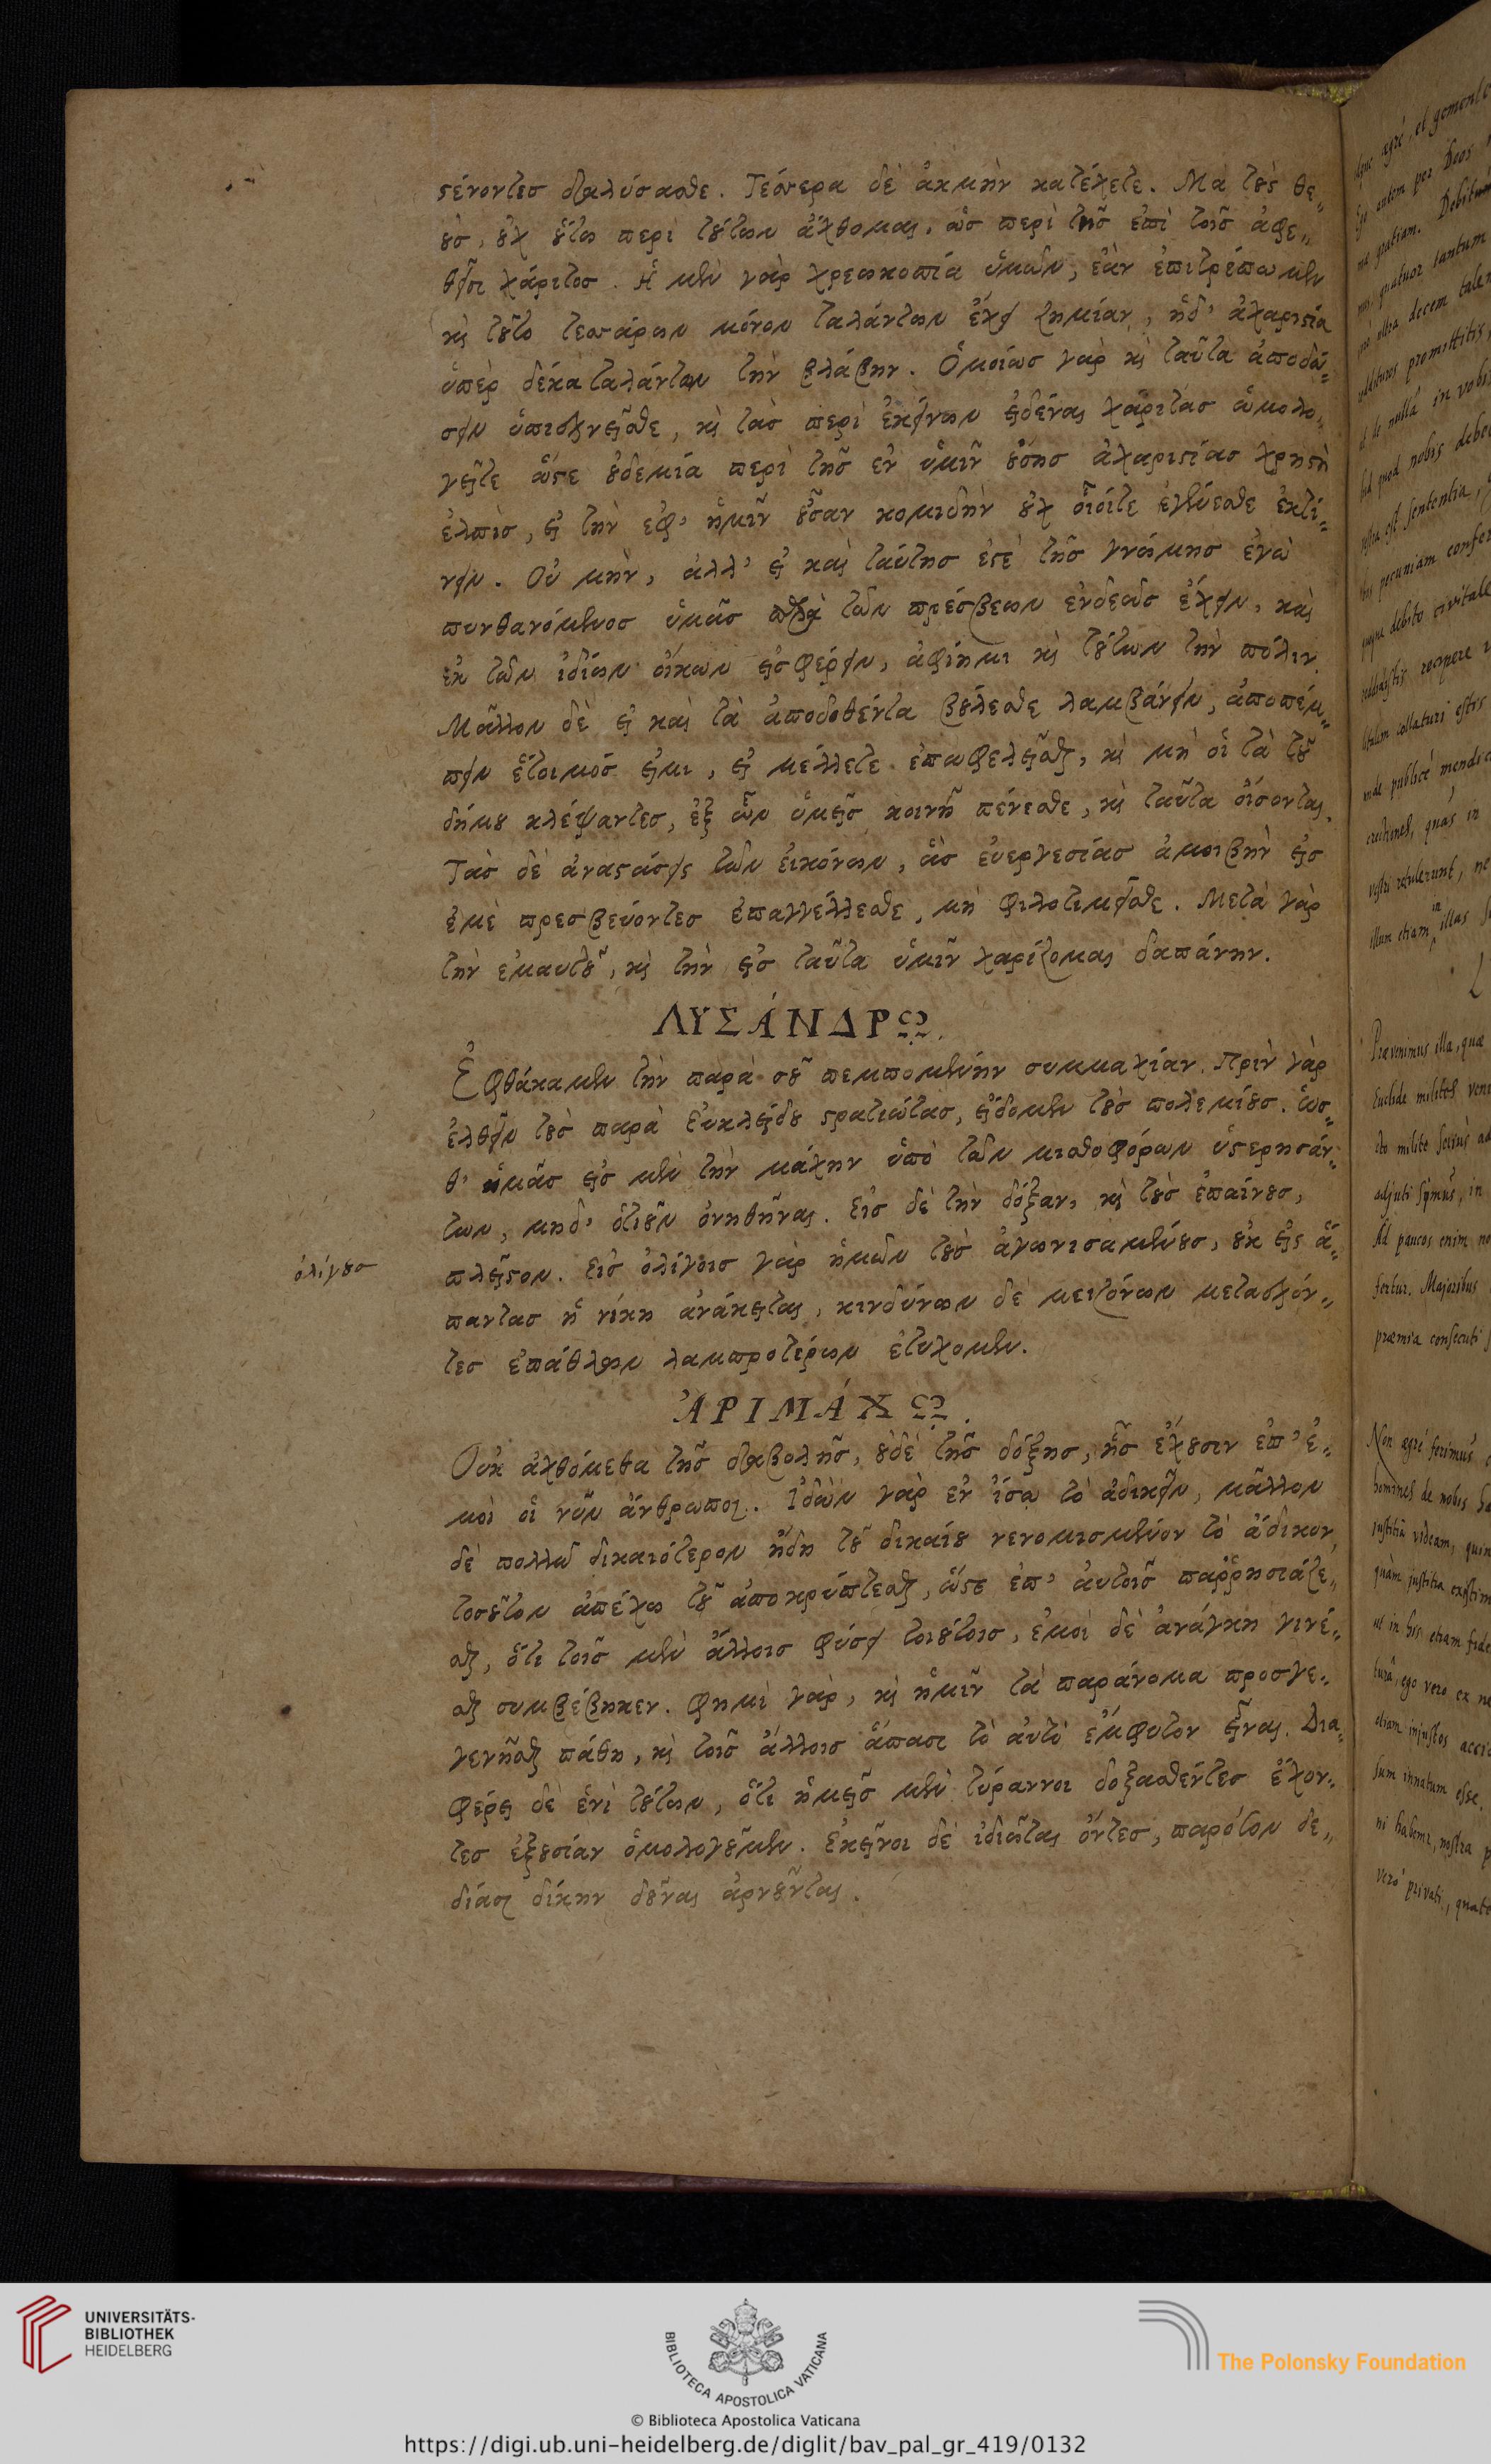 στένοντες διαλύσασθε. Τέσσερα δὲ ἀκμὴν κατέχετε. Μὰ τοὺς θε„
οὺς, οὐχ οὕτω περὶ τούτων ἄχθομαι, ὡς περὶ τῆς ἐπὶ τοῖς ἀφε„
θεῖσι χάριτος. Ἡ μὲν γὰρ χρεωκοπία ὑμῶν, ἐὰν ἐπιτρέπωμεν
καὶ τοῦτο τεσσάρων μόνον ταλάντων ἔχει ζημίαν, ἡ δ' ἀχαριστία
ὑπὲρ δέκα ταλάντων τὴν βλάβην. Ὁμοίως γὰρ καὶ ταῦτα ἀποδώ„
σειν ὑπισχνεῖσθε, καὶ τὰς περὶ ἐκείνων εἰδέναι χάριτας ὡμολο„
γεῖτε ὥστε οὐδεμία περὶ τῆς ἐν ὑμῖν οὔσης ἀχαριστίας χρηστὴ
ἐλπὶς, εἰ τὴν ἐφ' ἡμῖν οὖσαν κομιδὴν οὐχ οἷοίτε ἐγένεσθε ἐκτί„
νειν. Οὐ μὴν, ἀλλ' εἰ καὶ ταύτης ἐστὲ τῆς γνώμης ἐγὼ
πυνθανόμενος ὑμᾶς παρὰ τῶν πρέσβεων ἐνδεῶς ἔχειν, καὶ
ἐκ τῶν ἰδίων οἴκων εἰσφέρειν, ἀφίημι καὶ τούτων τὴν πόλιν.
Μᾶλλον δὲ εἰ καὶ τὰ ἀποδοθέντα βούλεσθε λαμβάνειν, ἀποπέμ„
πειν ἕτοιμός εἰμι, εἰ μέλλετε ἐπωφελεῖσθαι, καὶ μὴ οἱ τὰ τοῦ
δήμου κλέψαντες, ἐξ ὧν ὑμεῖς κοινῇ πένεσθε, καὶ ταῦτα οἴσονται.
Τὰς δὲ ἀναστάσεις τῶν εἰκόνων, ἃς εὐεργεσίας ἀμοιβὴν εἰς
ἐμὲ πρεσβεύοντες ἐπαγγέλλεσθε, μὴ φιλοτιμεῖσθε. Μετὰ γὰρ
τὴν ἐμαυτοῦ, καὶ τὴν εἰς ταῦτα ὑμῖν χαρίζομαι δαπάνην.
ΛΥΣΆΝΔΡΩ.
Ἐφθάκαμεν τὴν παρὰ σοῦ πεμπομένην συμμαχίαν. Πρὶν γὰρ
ἐλθεῖν τοὺς παρὰ Εὐκλείδου στρατιώτας, εἴδομεν τοὺς πολεμίους. ὥσ„
θ' ἡμᾶς εἰς μὲν τὴν μάχην ὑπὸ τῶν μισθοφόρων ὑστερησάν„
των, μηδ' ὁτιοῦν ὀνηθῆναι. Εἰς δὲ τὴν δόξαν, καὶ τοὺς ἐπαίνους,
πλεῖστον. Εἰς ὀλίγοις γὰρ ἡμῶν τοὺς ἀγωνισαμένους, οὐκ εἰς ἅ„
ὀλίγους
παντας ἡ νίκη ἀνάκειται, κινδύνων δὲ μειζόνων μετασχόν„
τες ἐπάθλων λαμπροτέρων ἐτύχομεν.
ἈΡΙΜΆΧΩ.
Οὐκ ἀχθόμεθα τῆς διαβολῆς, οὐδὲ τῆς δόξης, ἧς ἔχουσιν ἐπ' ἐ„
μοὶ οἱ νῦν ἄνθρωποι. Ἰδὼν γὰρ ἐν ἴσῳ τὸ ἀδικεῖν, μᾶλλον
δὲ πολλῷ δικαιότερον ἤδη τοῦ δικαίου νενομισμένον τὸ ἄδικον,
τοσοῦτον ἀπέχω τοῦ ἀποκρύπτεσθαι, ὥστε ἐπ' αὐτοῖς παῤῥησιάζε„
σθαι, ὅτι τοῖς μὲν ἄλλοις φύσει τοιούτοις, ἐμοὶ δὲ ἀνάγκη γινέ„
σθαι συμβέβηκεν. φημὶ γὰρ, καὶ ἡμῖν τὰ παράνομα προσγε„
γενῆσθαι πάθη, καὶ τοῖς ἄλλοις ἅπασι τὸ αὐτὸ ἔμφυτον εἶναι. Δια„
φέρει δὲ ἑνὶ τούτων, ὅτι ἡμεῖς μὲν τύραννοι δοξασθέντες ἔχον„
τες ἐξουσίαν ὁμολογοῦμεν. Ἐκεῖνοι δὲ ἰδιῶται ὄντες, παρόσον δε„
δίασι δίκην δοῦναι ἀρνοῦνται.
UNIVERSITÄTS-
BIBLIOTHEK
HEIDELBERG
BIBLIOTECA APOSTOLICA VATICANA
The Polonsky Foundation
© Biblioteca Apostolica Vaticana
https://digi.ub.uni-heidelberg.de/diglit/bav_pal_gr_419/0132